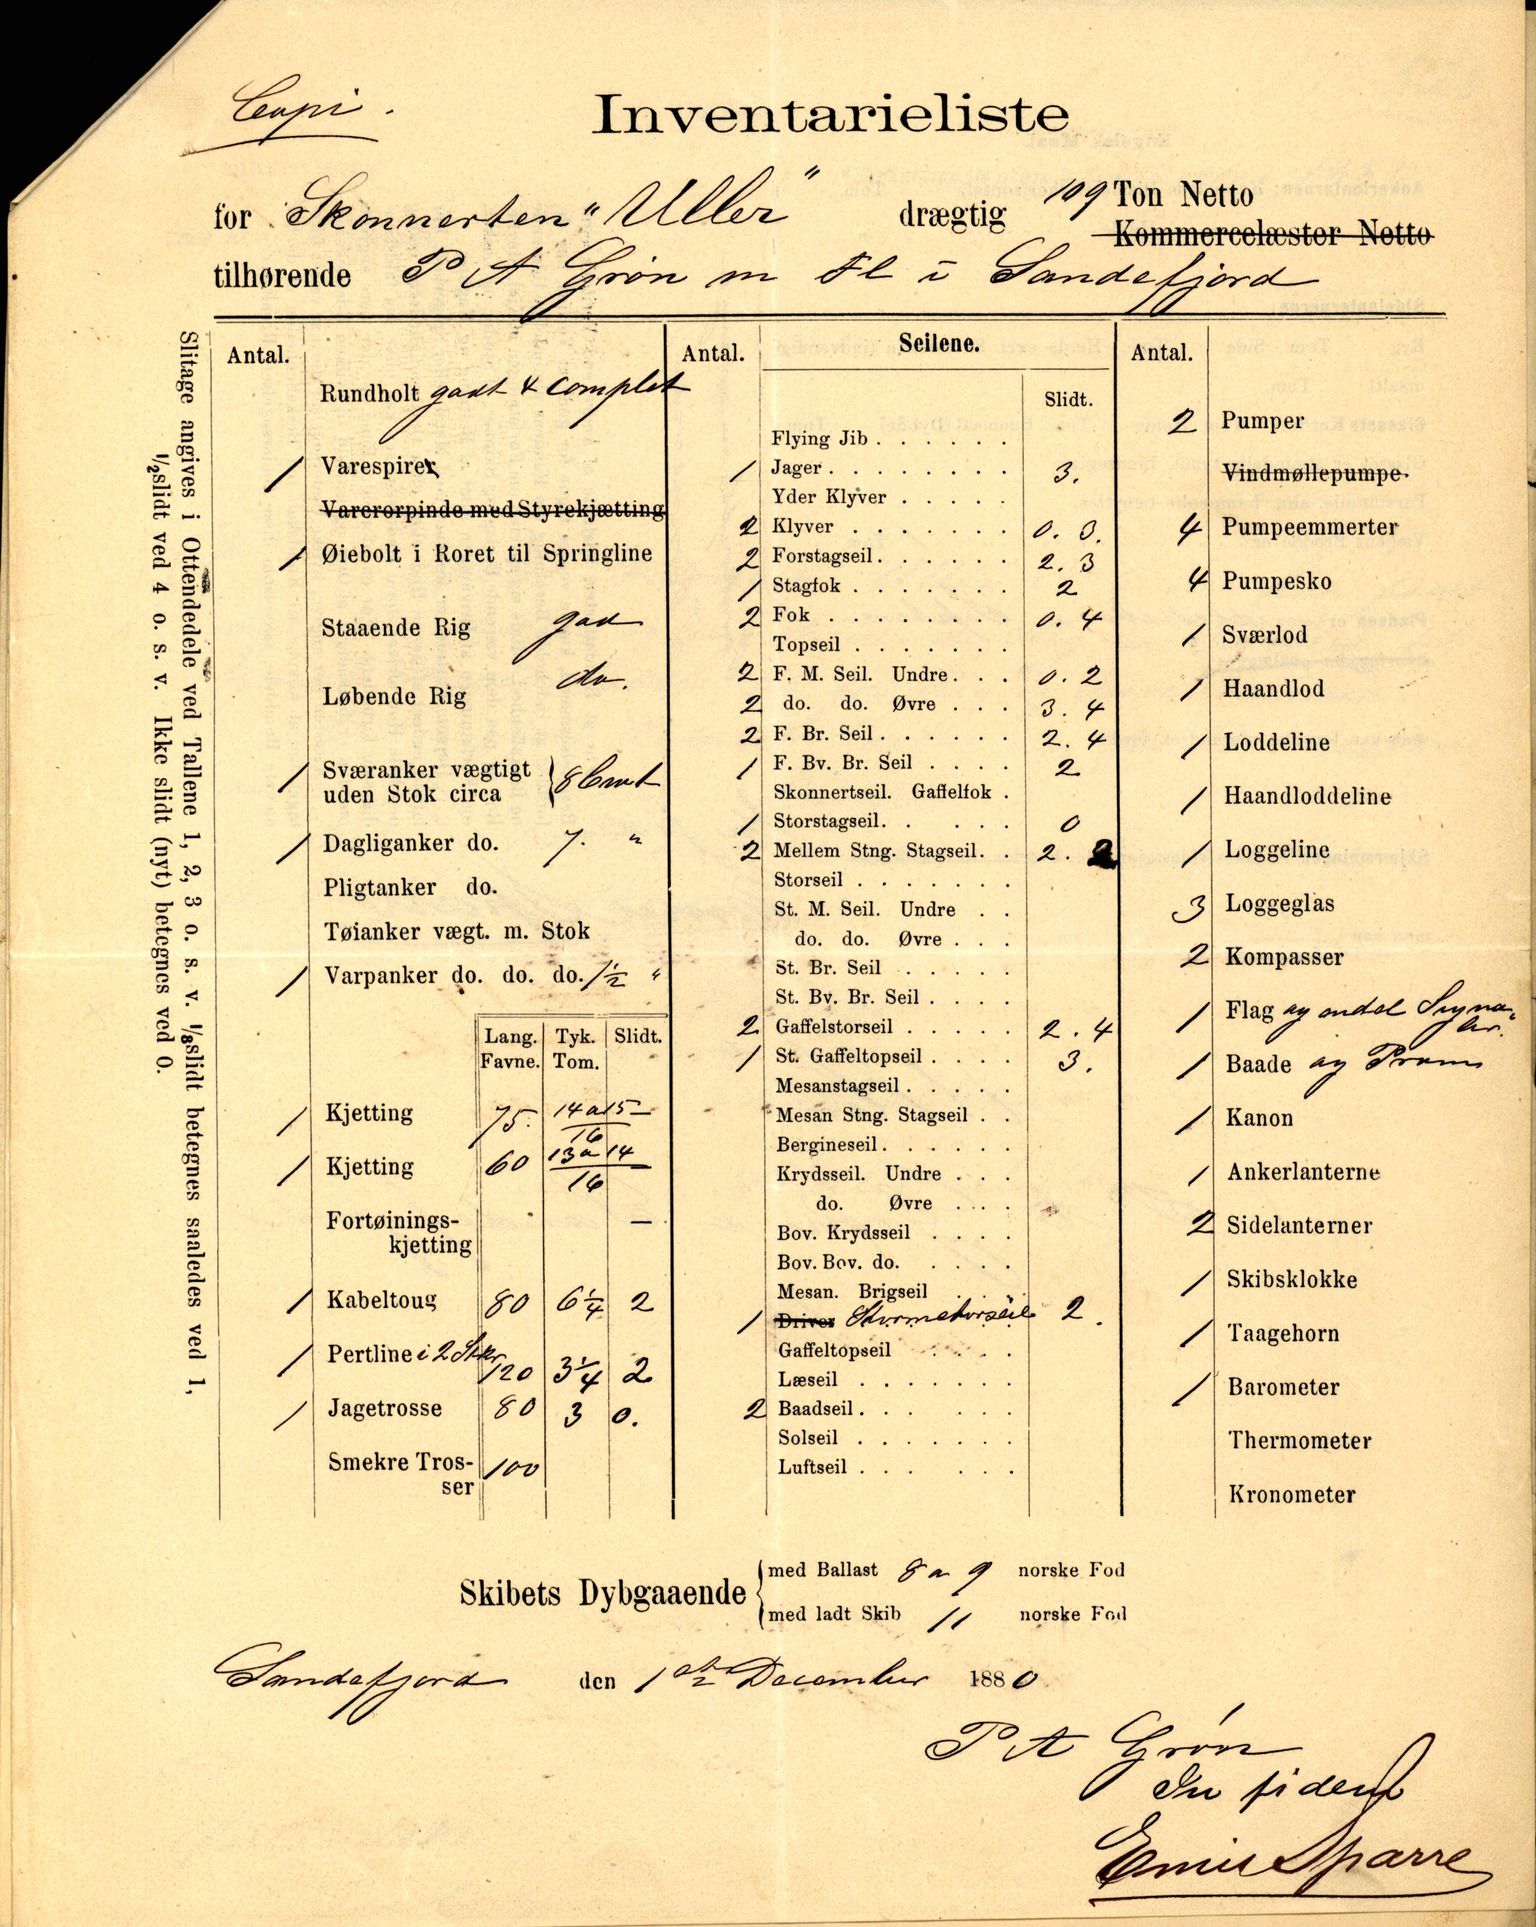 Copi.
Inventarieliste
for Skonnerten "Uller" drægtig 109 Ton Netto
Kommercelæster Netto
tilhørende P A Grøn m Fl i Sandefjord
Slitage angives i Ottendedele ved Tallene 1, 2, 3 o. s. v. 1/8 slidt betegnes saaledes ved 1,
1/2 slidt ved 4 o. s. v. Ikke slidt (nyt) betegnes ved 0.
Antal.
Rundholt godt & complet
1 Varespirer
Varerorpinde med Styrekjætting
1 Øiebolt i Roret til Springline
Staaende Rig god
Løbende Rig do.
1 Sværanker vægtigt
uden Stok circa 8 Cwt
1 Dagliganker do. 7. "
Pligtanker do.
Tøianker vægt. m. Stok
1 Varpanker do. do. do. 1 1/2 "
Lang. Tyk. Slidt.
Favne. Tom.
1 Kjetting 75. 14 a 15/16
1 Kjetting 60 13 a 14/16
Fortøinings-
kjetting —
1 Kabeltoug 80 6 1/4 2
1 Pertline i 2 Stkr 120 3 1/4 2
1 Jagetrosse 80 3 0.
Smekre Tros-
ser 100
Antal. Seilene.
Slidt.
Flying Jib
1 Jager 3.
Yder Klyver
2 Klyver 0. 3.
2 Forstagseil 2. 3
1 Stagfok 2
2 Fok 0. 4
Topseil
2 F. M. Seil. Undre 0. 2
2 do. do. Øvre 3. 4
2 F. Br. Seil 2. 4
1 F. Bv. Br. Seil 2
Skonnertseil. Gaffelfok
1 Storstagseil 0
2 Mellem Stng. Stagseil 2. 2
Storseil
St. M. Seil. Undre
do. do. Øvre
St. Br. Seil
St. Bv. Br. Seil
2 Gaffelstorseil 2. 4
1 St. Gaffeltopseil 3.
Mesanstagseil
Mesan Stng. Stagseil
Bergineseil
Krydsseil. Undre
do. Øvre
Bov. Krydsseil
Bov. Bov. do.
Mesan. Brigseil
1 Driver Stormstorseil 2.
Gaffeltopseil
Læseil
2 Baadseil
Solseil
Luftseil
Antal.
2 Pumper
Vindmøllepumpe
4 Pumpeemmerter
4 Pumpesko
1 Sværlod
1 Haandlod
1 Loddeline
1 Haandloddeline
1 Loggeline
3 Loggeglas
2 Kompasser
1 Flag og endel Signa-
ler.
1 Baade og Pram
1 Kanon
1 Ankerlanterne
2 Sidelanterner
1 Skibsklokke
1 Taagehorn
1 Barometer
Thermometer
Kronometer
Skibets Dybgaaende
med Ballast 8 a 9 norske Fod
med ladt Skib 11 norske Fod
Sandefjord den 1ste December 1880
P A Grøn
In fidem
Emil Sparre